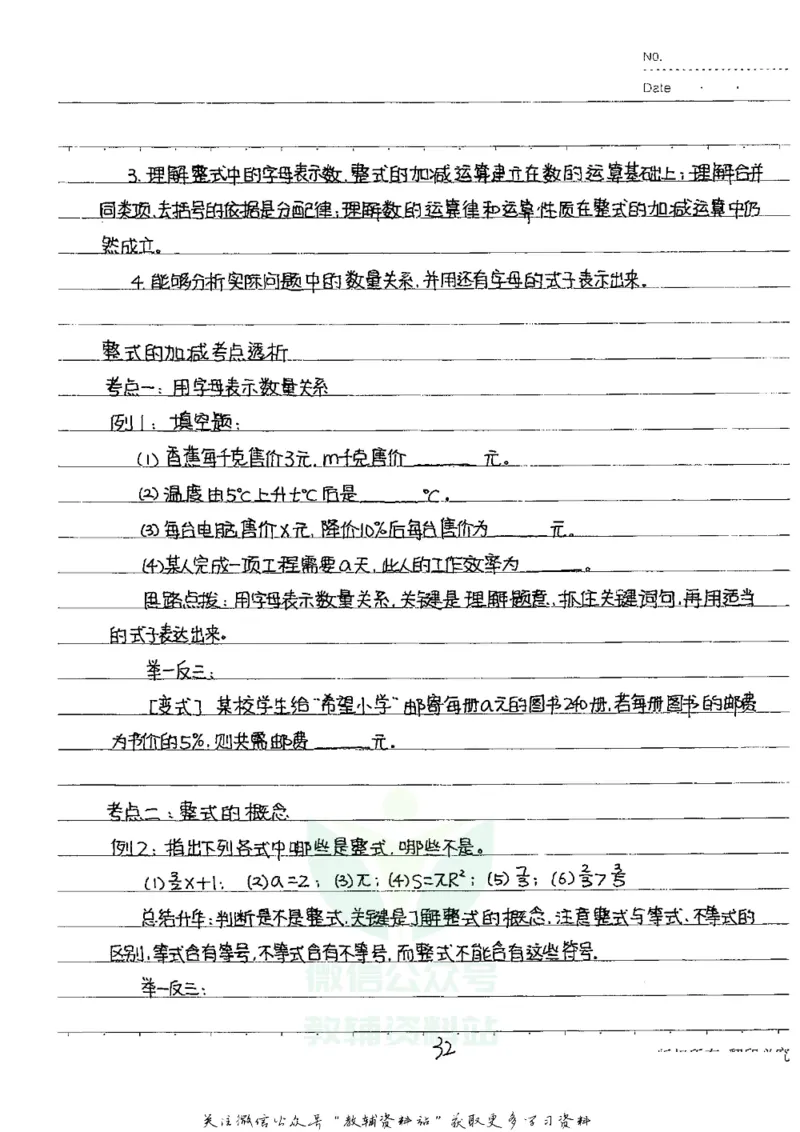 NO.
Date
3. 理解整式中的字母表示数,整式的加减运算建立在数的运算基础上;理解合并
同类项、去括号的依据是分配律;理解数的运算律和运算性质在整式的加减运算中仍
然成立。
4. 能够分析实际问题中的数量关系,并用还有字母的式子表示出来。
整式的加减考点透析
考点一:用字母表示数量关系
例1:填空题:
(1) 香蕉每千克售价3元,m千克售价______元。
(2) 温度由5℃上升t℃后是______℃。
(3) 每台电脑售价x元,降价10%后每台售价为______元。
(4) 某人完成一项工程需要a天,此人的工作效率为______。
思路点拨:用字母表示数量关系,关键是理解题意,抓住关键词句,再用适当
的式子表达出来。
举一反三:
[变式] 某校学生给"希望小学"邮寄每册a元的图书240册,若每册图书的邮费
为书价的5%,则共需邮费______元。
考点二:整式的概念
例2:指出下列各式中哪些是整式,哪些不是。
(1) 3/2x+1; (2) a=2; (3) π; (4) S=πR²; (5) 7/3; (6) 2/3>3/5
总结升华:判断是不是整式,关键是了解整式的概念,注意整式与等式、不等式的
区别,等式含有等号,不等式含有不等号,而整式不能含有这些符号.
举一反三:
微信公众号
教辅资料站
32
版权所有 翻印必究
关注微信公众号"教辅资料站"获取更多学习资料